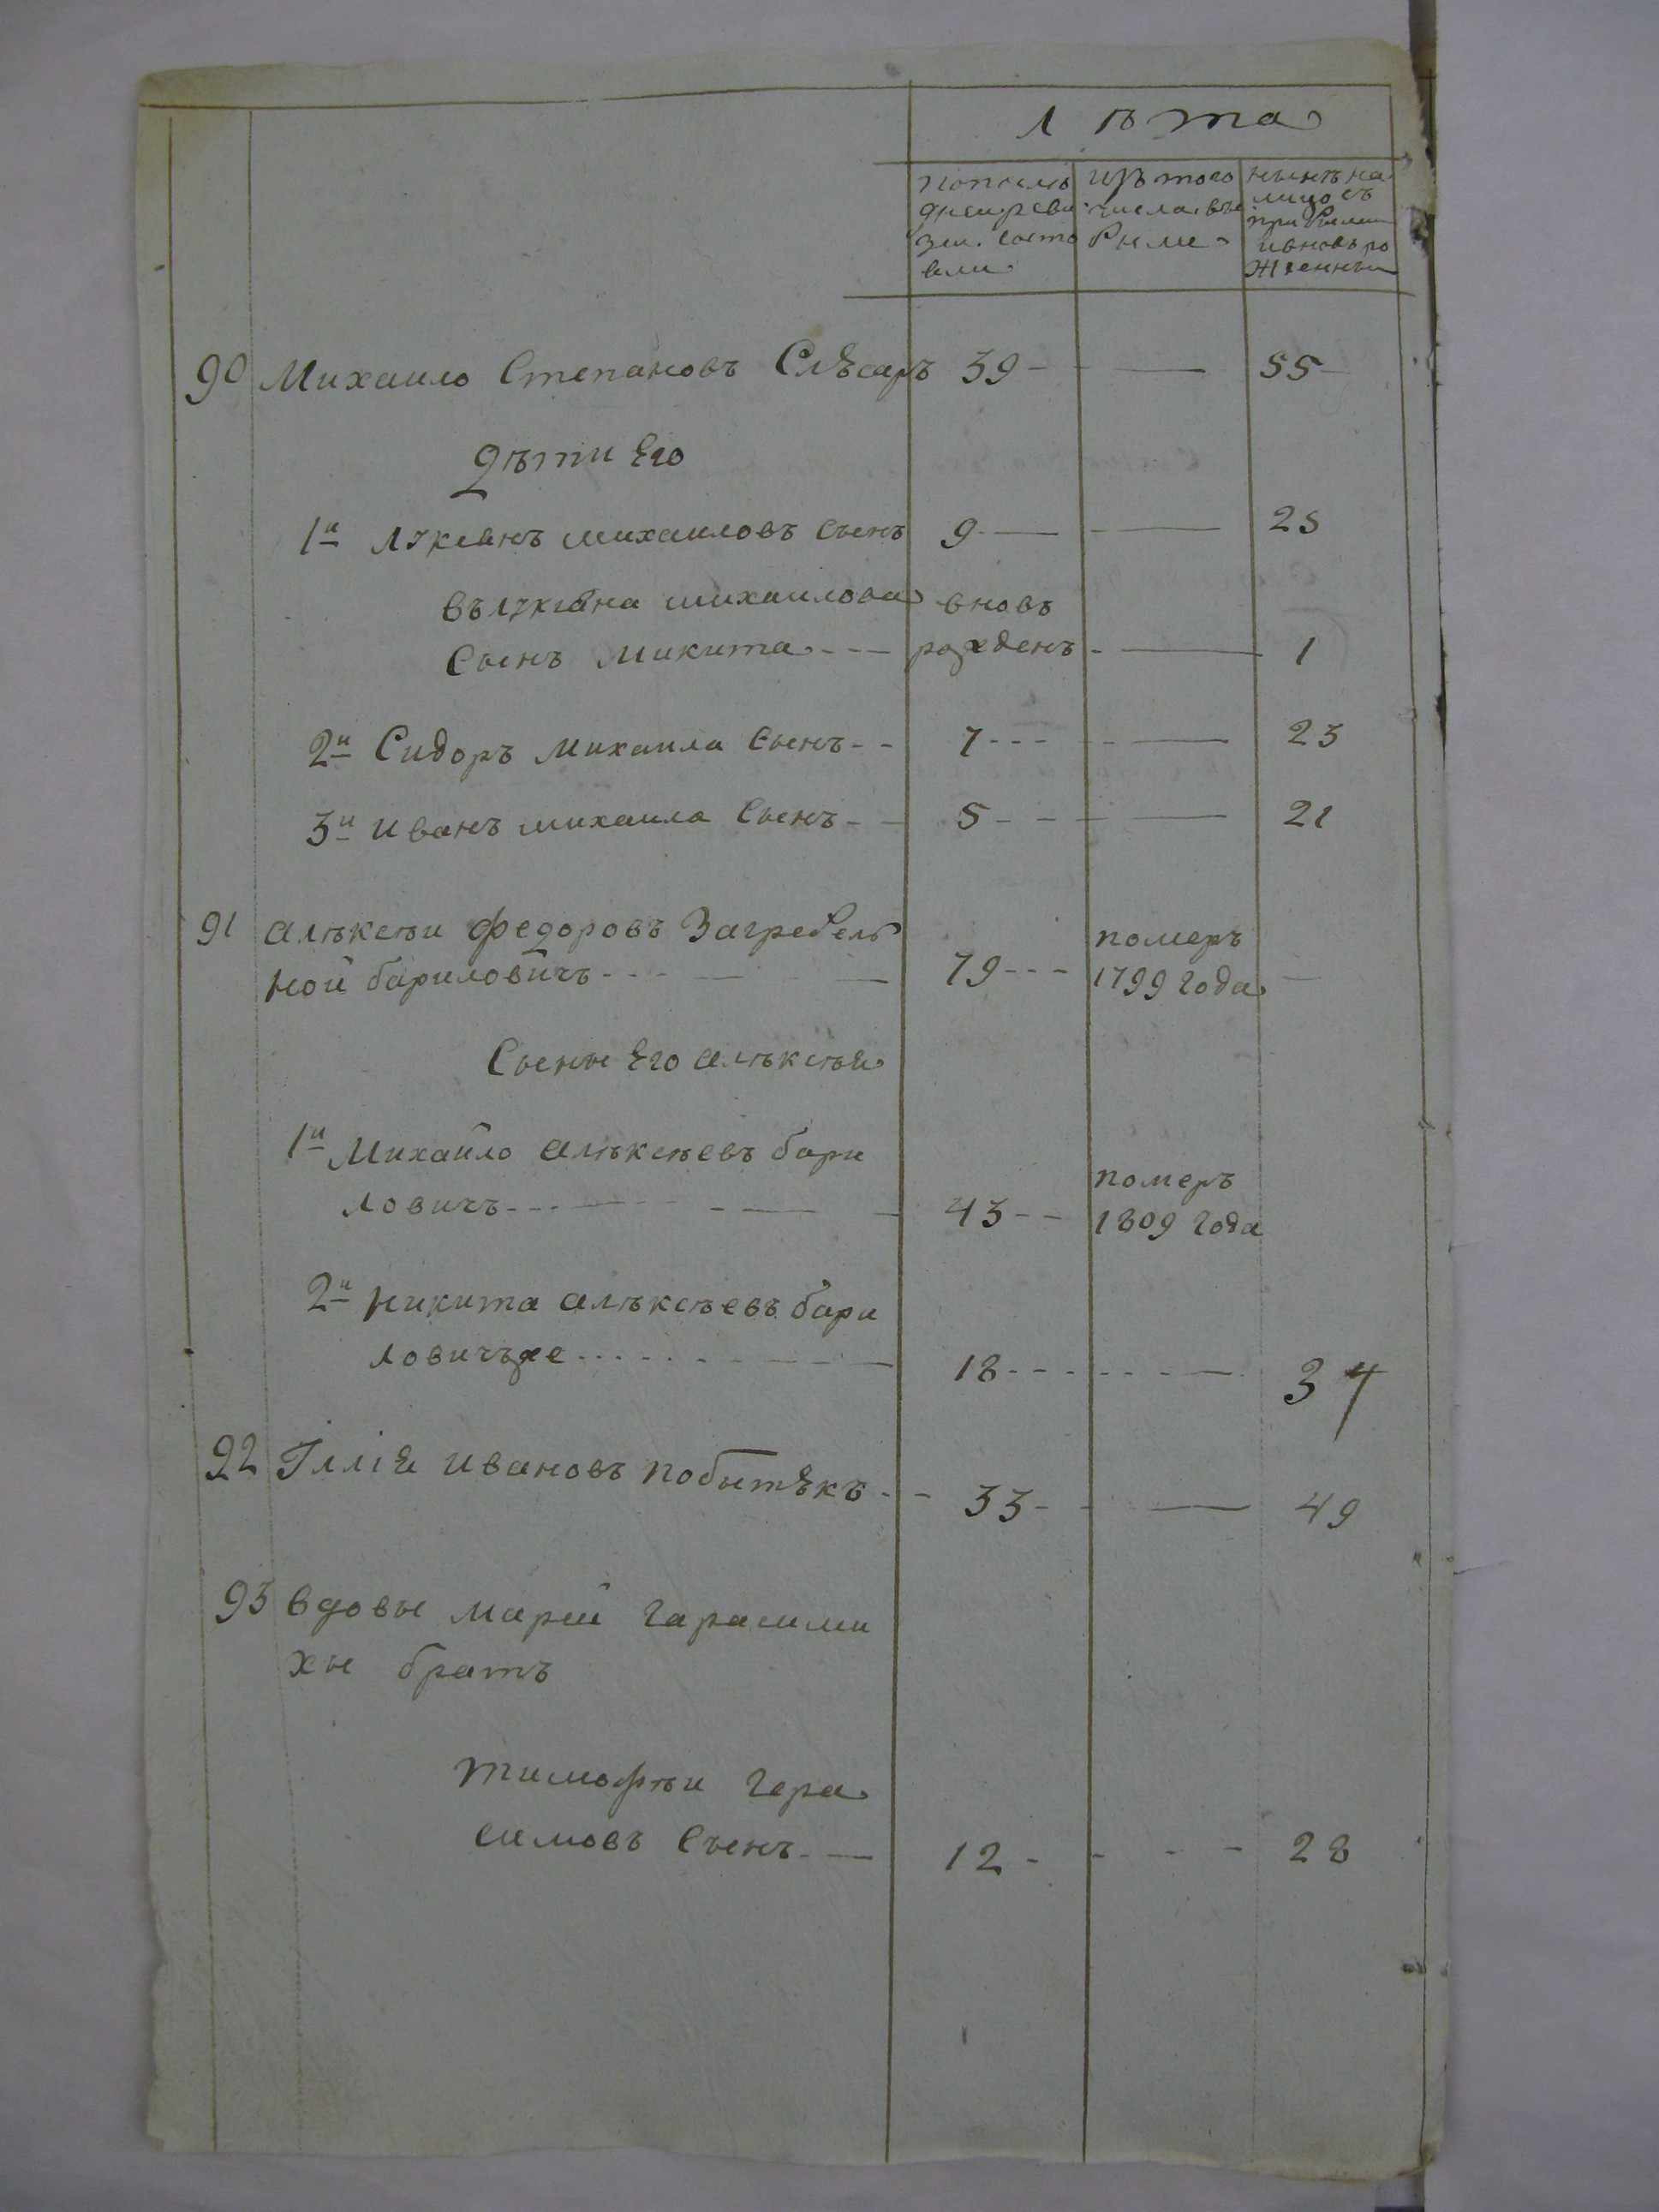 лѣта
попослѣ изъ того нынѣ на
днеи реви числа выб лицо съ
зіи состо были прибылими
яли и вновь ро
жденными
90 Михаило Степановъ Слѣсаръ 39 55
дѣти Его
1й Лукіянъ михаиловъ сынъ 9 25
въ лукіяна михаилова вновь
сынъ микита рожденъ 1
2й Сидоръ михаила сынъ 7 23
3й иванъ михаила сынъ 5 21
91 алѣксѣи федоровъ Загребель померъ
ной бариловичъ 79 1799 года
Сыны Его алѣксѣя
1й Михайло алѣксѣевъ бари померъ
ловичъ 43 1809 года
2й Никита алѣксѣевъ бари
ловичъже 18 34
92 Іллія ивановъ побытѣкъ 33 49
93 вдовы марїи гарасими
хы братъ
тимофѣи гера
симовъ сынъ 12 28